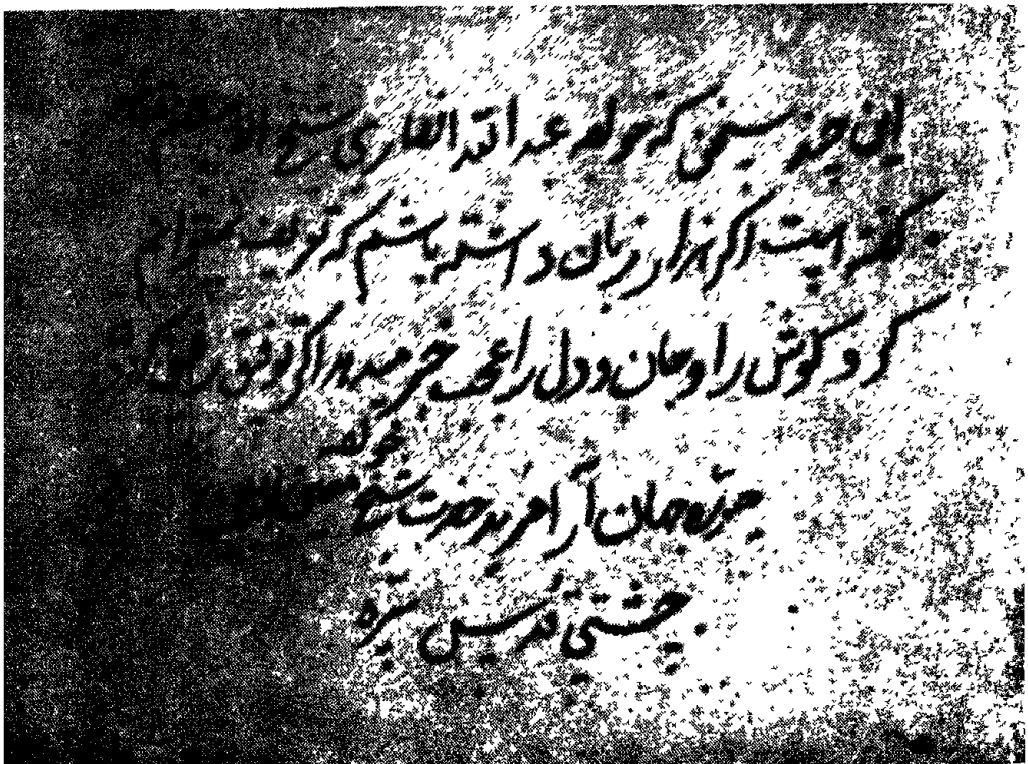 این چند سخنی که خواجه عبد الله انصاری شیخ الاسلام
گفته است اگر هزار زبان داشته باشم که تعریف نمیتوانم
کرد و گوش را و جان و دل را عجب خبر میدهد اگر توفیق رفیق گردد
خواجه
حقیره جهان آرا مرید حضرت شیخ معین الدین
چشتی قدس سره